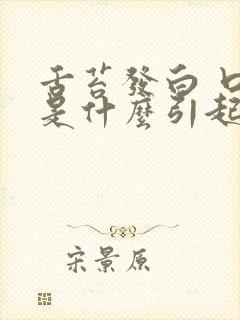 舌苔發白口
是什麼引起
宋景原